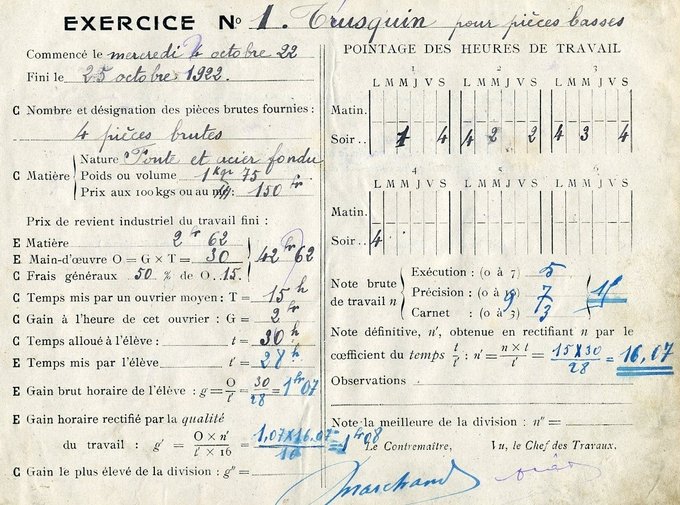 EXERCICE No 1. Trusquin pour pièces basses
Commencé le mercredi 4 octobre 22
Fini le 25 octobre 1922.
C Nombre et désignation des pièces brutes fournies :
4 pièces brutes
C Matière
Nature Fonte et acier fondu
Poids ou volume 1 kgr 75
Prix aux 100 kgs ou au m : 150 fr
Prix de revient industriel du travail fini :
E Matière 2 fr 62
E Main-d'œuvre O = G × T = 30
C Frais généraux 50 % de O.. 15.
42 fr 62
C Temps mis par un ouvrier moyen : T = 15 h
C Gain à l'heure de cet ouvrier : G = 2 fr
C Temps alloué à l'élève : t = 30 h
E Temps mis par l'élève t' = 28 h
E Gain brut horaire de l'élève : g = O/t' = 30/28 = 1 fr 07
E Gain horaire rectifié par la qualité
du travail : g' = O × n' / t' × 16 = 1,07 X 16.07 / 16 = 1 fr 08
C Gain le plus élevé de la division : g" =
POINTAGE DES HEURES DE TRAVAIL
1 2 3
L M M J V S L M M J V S L M M J V S
Matin.
Soir .. 1 4 4 2 2 4 3 4
4 5 6
L M M J V S L M M J V S L M M J V S
Matin.
Soir .. 4
Note brute de travail n
Exécution : (0 à 7) 5
Précision : (0 à 9) 7
Carnet : (0 à 3) 3
15
Note définitive, n', obtenue en rectifiant n par le
cœfficient du temps t/t' : n' = n × t / t' = 15 X 30 / 28 = 16,07
Observations
Note: la meilleure de la division : n" =
Le Contremaître, Vu, le Chef des Travaux.
Marchand